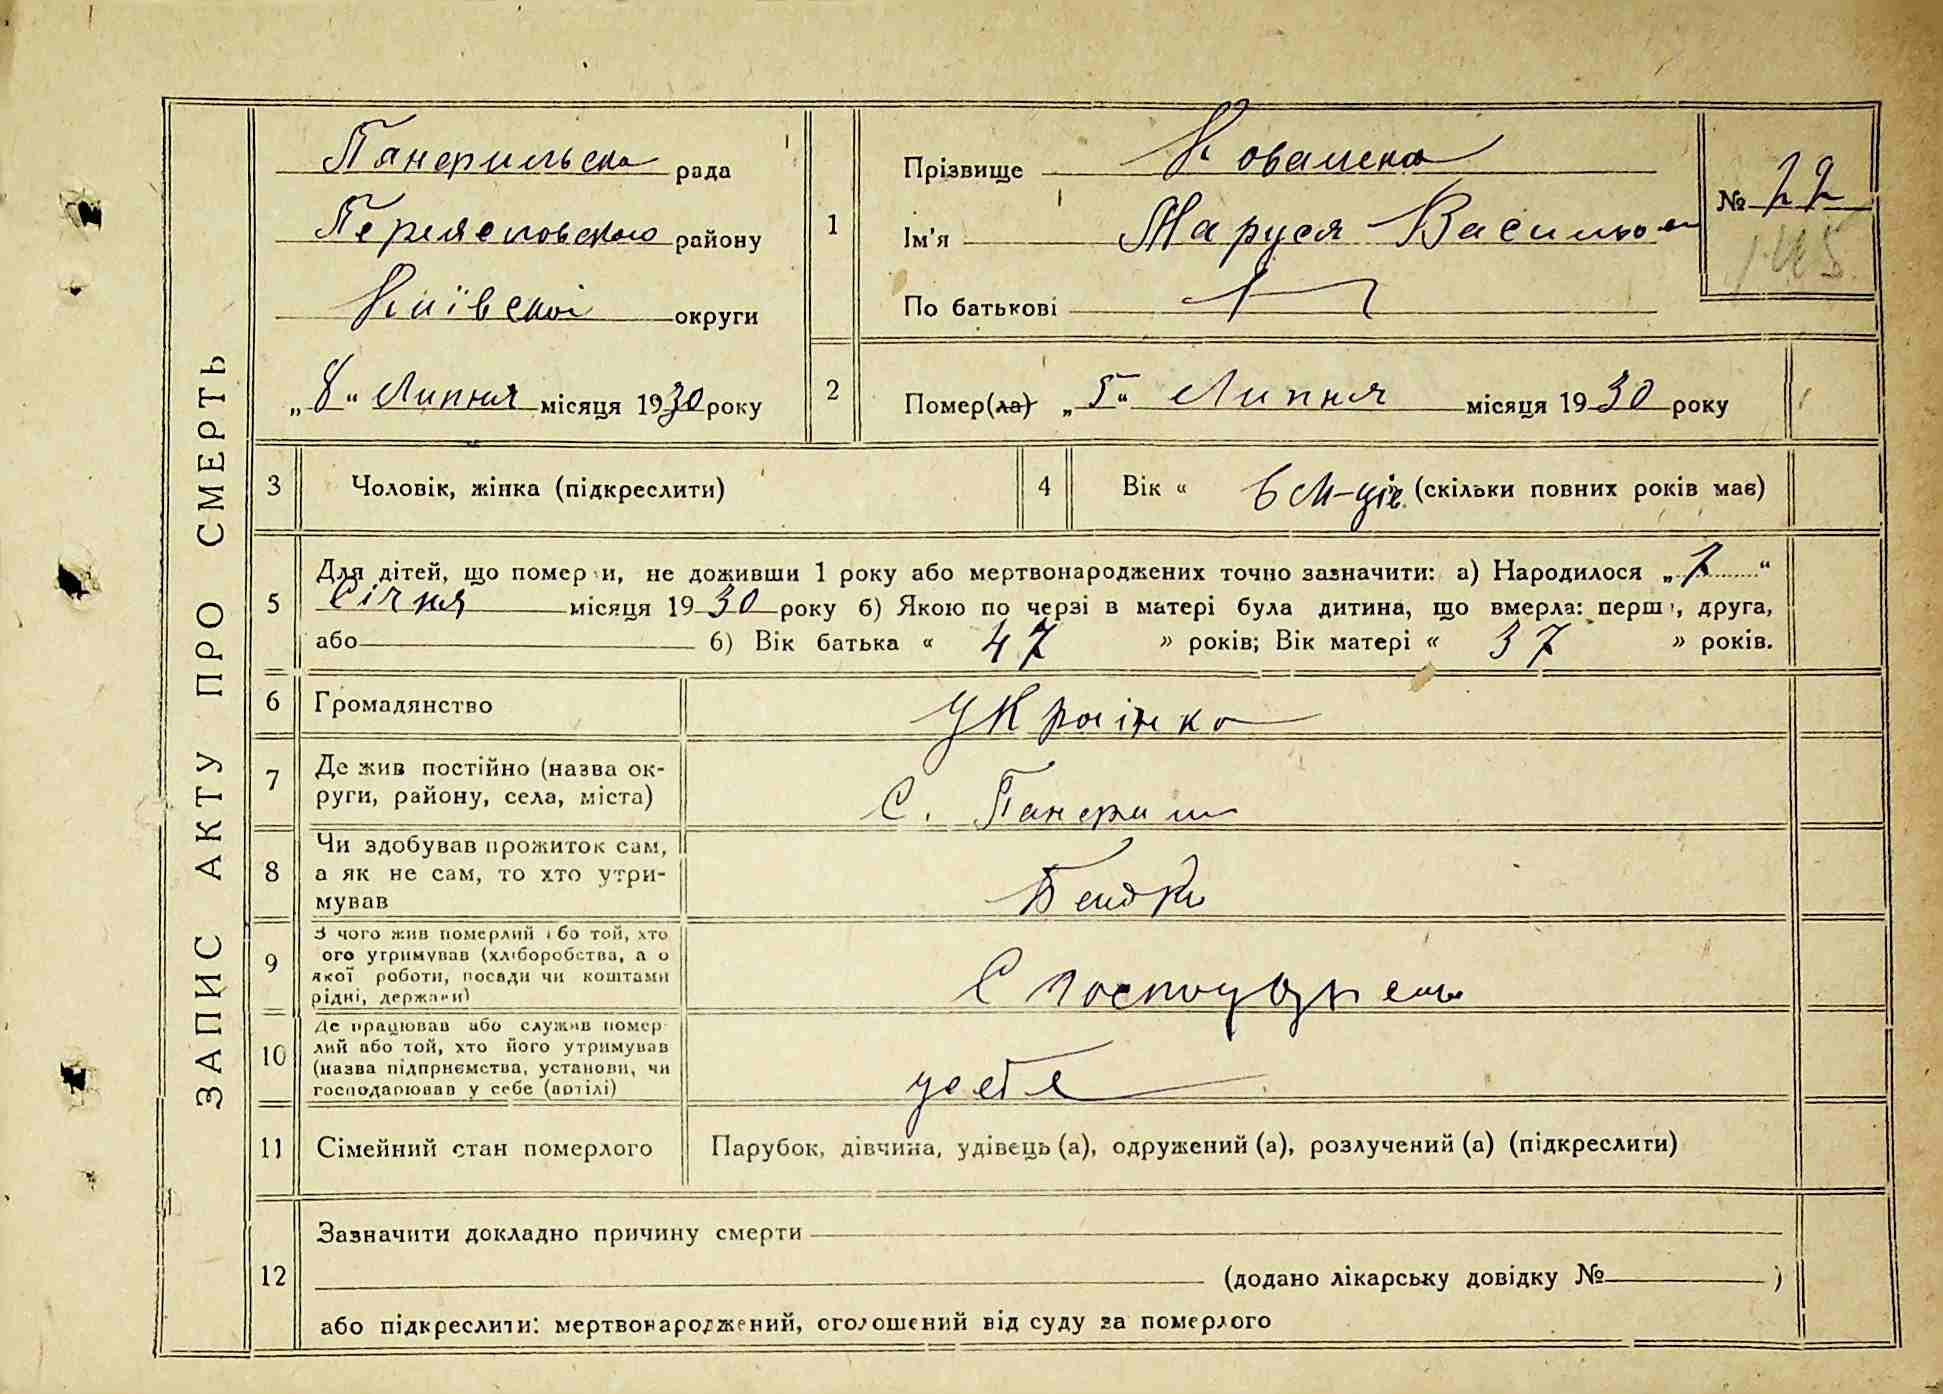 ЗАПИС АКТУ ПРО СМЕРТЬ
Панфильська рада
Переяславського району
Київської округи
„8“ Липня місяця 1930 року
1
Прізвище
Ім'я Маруся Васильо
По батькові
№ 22
145
2
Помер(ла) „5“ Липня місяця 1930 року
3 Чоловік, жінка (підкреслити)
4 Вік « 6 м-ців (скільки повних років має)
5
Для дітей, що померли, не доживши 1 року або мертвонароджених точно зазначити: а) Народилося „2“
Січня місяця 1930 року б) Якою по черзі в матері була дитина, що вмерла: перша, друга,
або б) Вік батька « 47 » років; Вік матері « 37 » років.
6 Громадянство Українка
7 Де жив постійно (назва ок-
руги, району, села, міста)
С. Панфили
8 Чи здобував прожиток сам,
а як не сам, то хто утри-
мував
Батьки
9 З чого жив померлий або той, хто
його утримував (хліборобства, а о
якої роботи, посади чи коштами
рідні, держави)
С
10 Де працював або служив помер-
лий або той, хто його утримував
(назва підприємства, установи, чи
господарював у себе (артілі)
у себе
11 Сімейний стан померлого Парубок, дівчина, удівець (а), одружений (а), розлучений (а) (підкреслити)
12
Зазначити докладно причину смерти
(додано лікарську довідку № )
або підкреслити: мертвонароджений, оголошений від суду за померлого